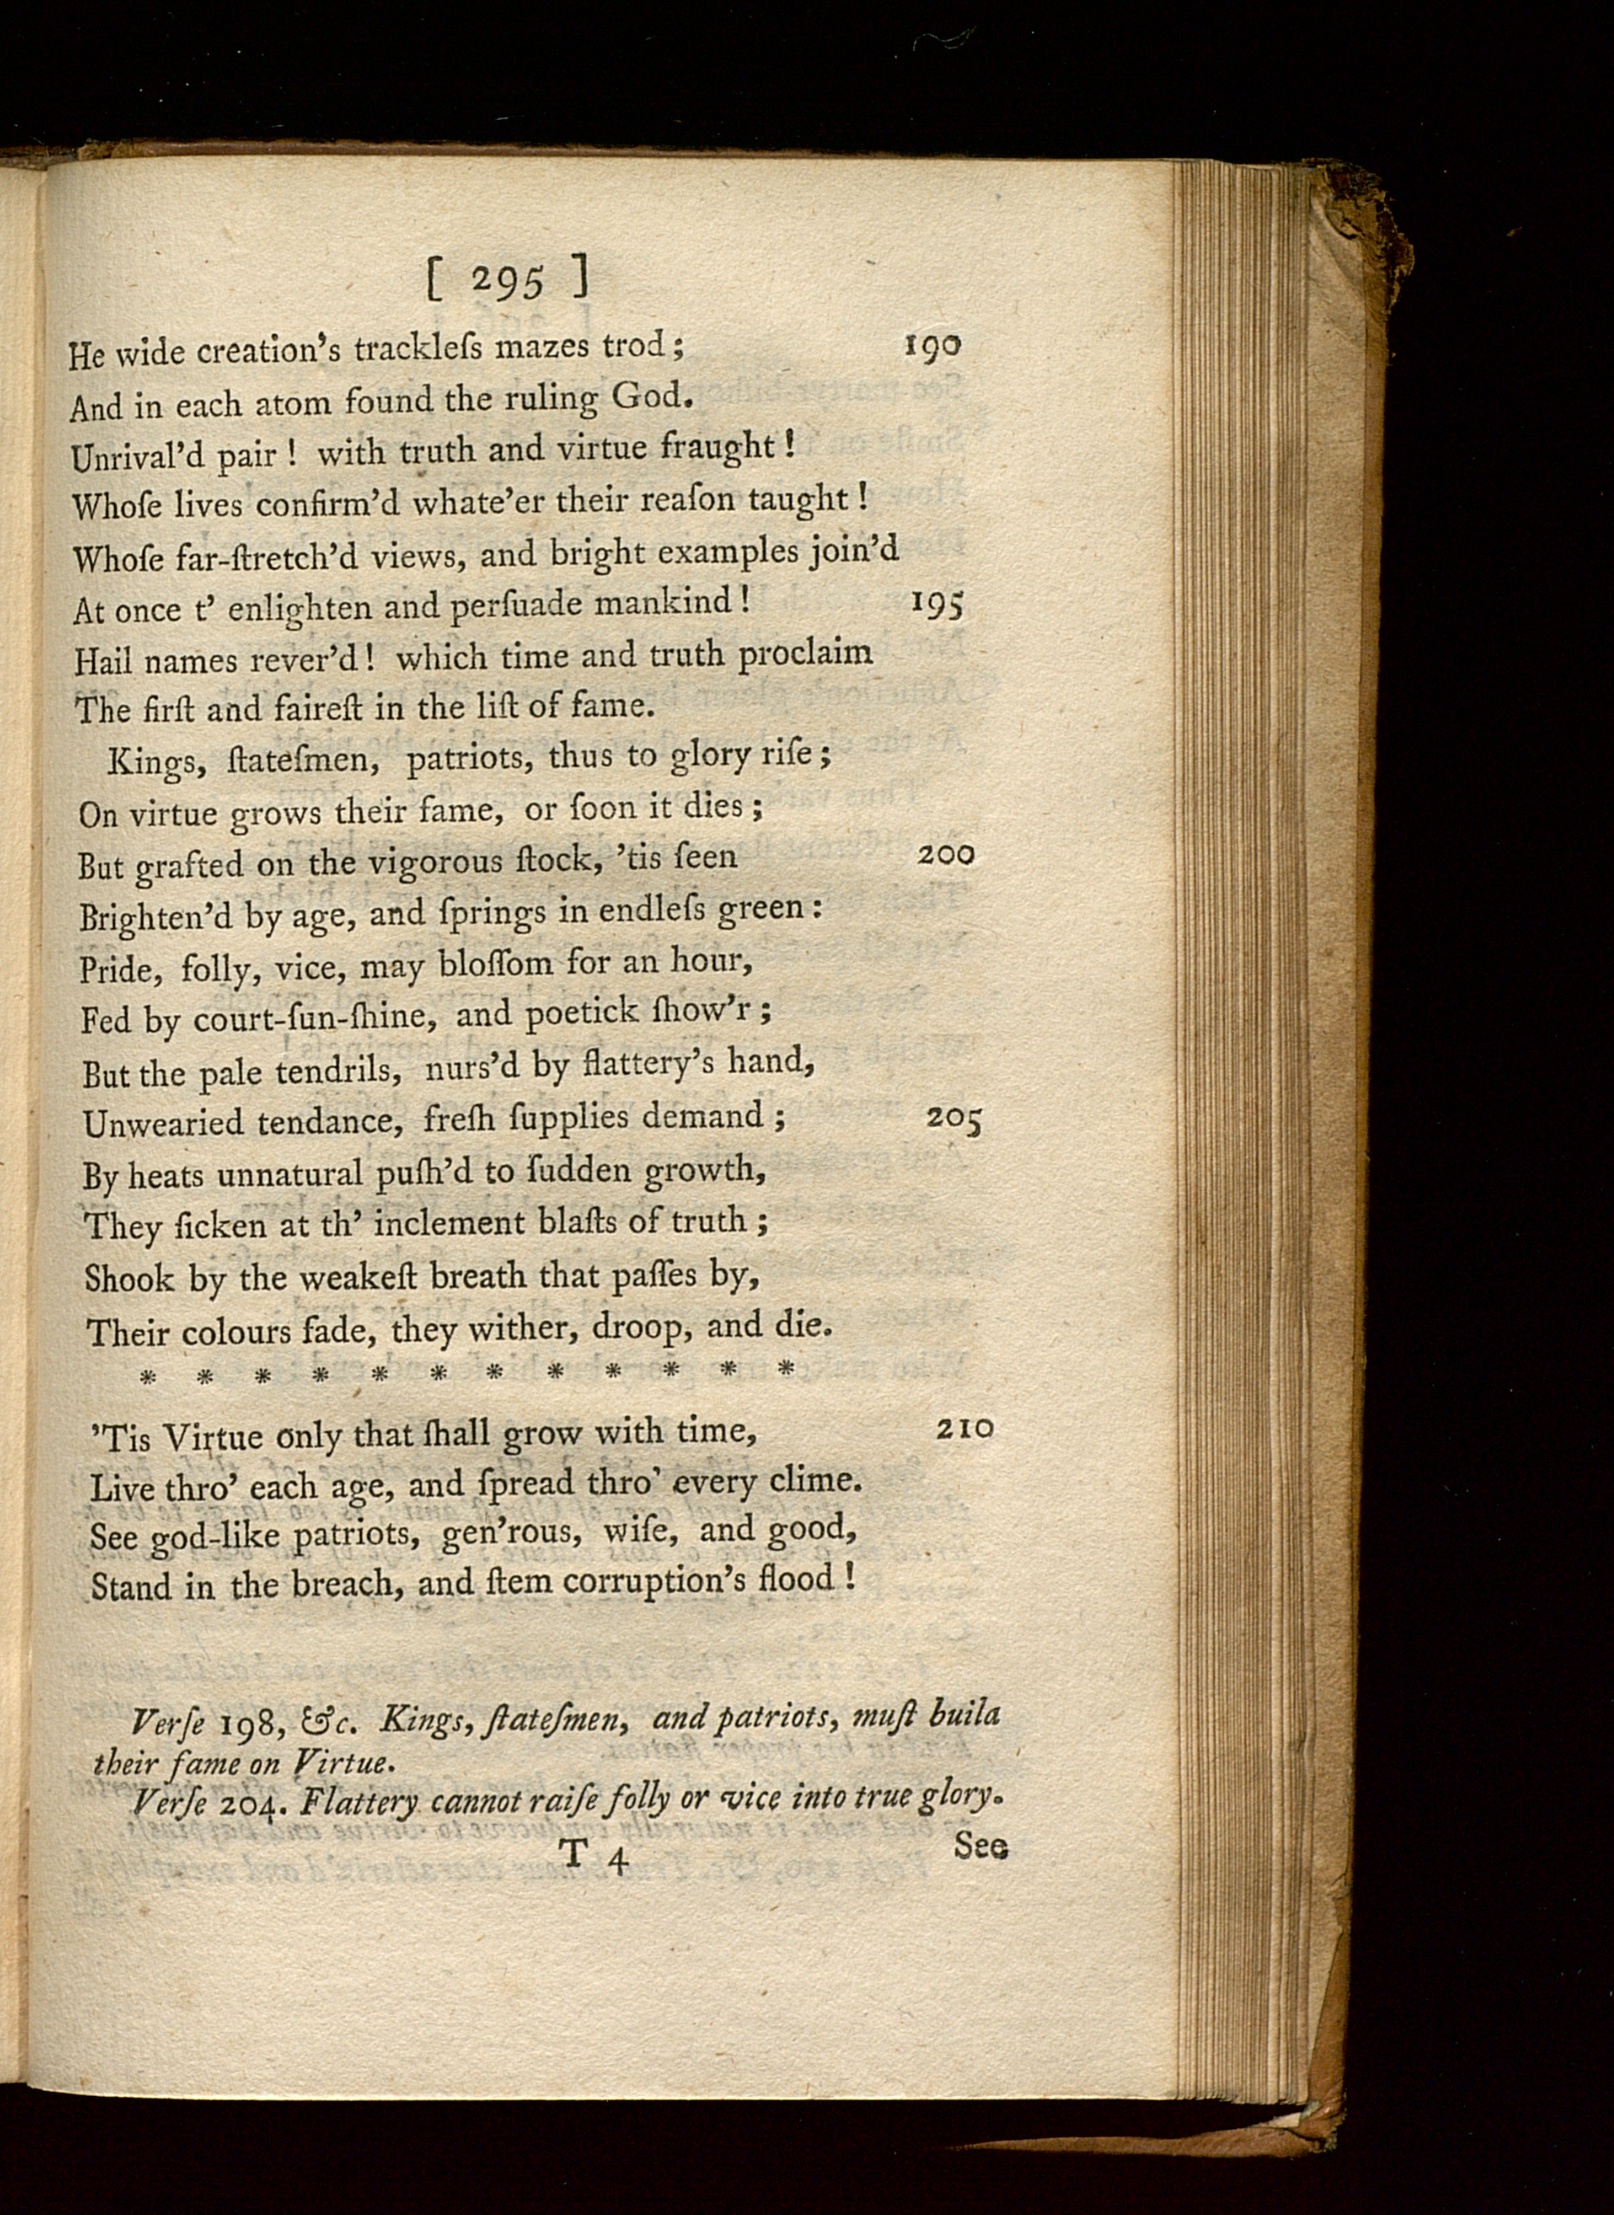 [ 295 ]
He wide creation's trackleſs mazes trod; 190
And in each atom found the ruling God.
Unrival'd pair! with truth and virtue fraught!
Whoſe lives confirm'd whate'er their reaſon taught!
Whoſe far-ſtretch'd views, and bright examples join'd
At once t' enlighten and perſuade mankind! 195
Hail names rever'd! which time and truth proclaim
The firſt and faireſt in the liſt of fame.
Kings, ſtateſmen, patriots, thus to glory riſe;
On virtue grows their fame, or ſoon it dies;
But grafted on the vigorous ſtock, 'tis ſeen 200
Brighten'd by age, and ſprings in endleſs green:
Pride, folly, vice, may bloſſom for an hour,
Fed by court-ſun-ſhine, and poetick ſhow'r;
But the pale tendrils, nurs'd by flattery's hand,
Unwearied tendance, freſh ſupplies demand; 205
By heats unnatural puſh'd to ſudden growth,
They ſicken at th' inclement blaſts of truth;
Shook by the weakeſt breath that paſſes by,
Their colours fade, they wither, droop, and die.
* * * * * * * * * * * *
'Tis Virtue only that ſhall grow with time, 210
Live thro' each age, and ſpread thro' every clime.
See god-like patriots, gen'rous, wiſe, and good,
Stand in the breach, and ſtem corruption's flood!
Verſe 198, &c. Kings, ſtateſmen, and patriots, muſt build
their fame on Virtue.
Verſe 204. Flattery cannot raiſe folly or vice into true glory.
T 4 See